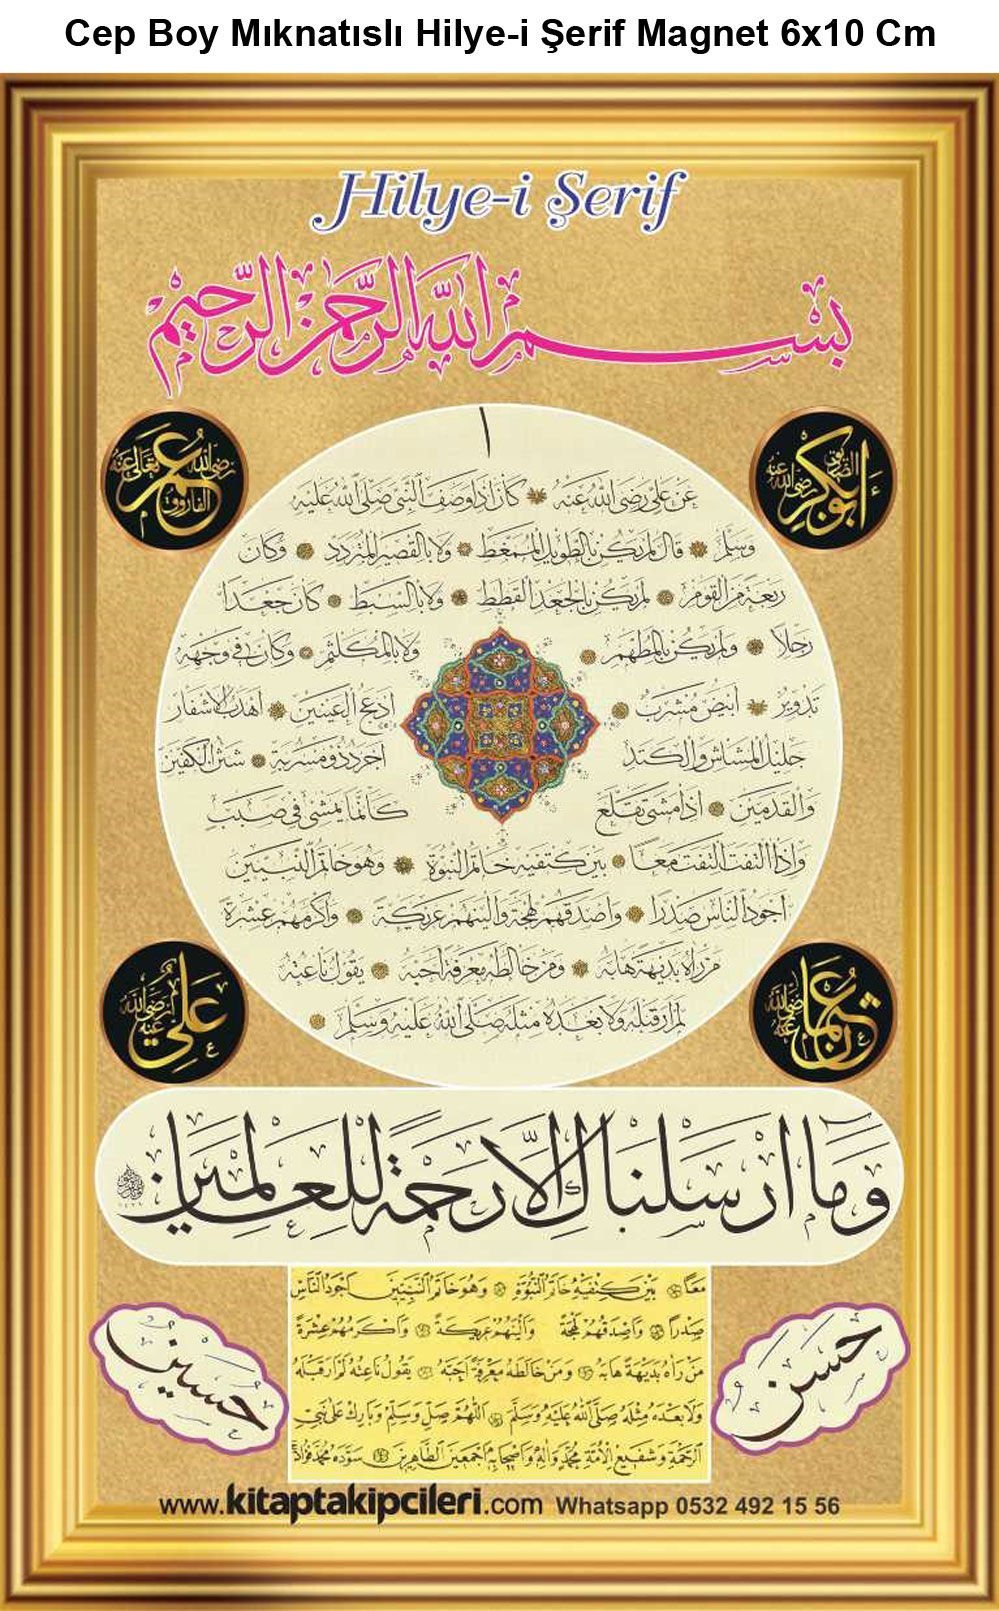 Cep Boy Mıknatıslı Hilye-i Şerif Magnet 6x10 Cm
Hilye-i Şerif
بِسْمِ اللَّهِ الرَّحْمَنِ الرَّحِيمِ
أبو بكر الصديق رضي الله عنه
عمر الفاروق رضي الله تعالى عنه
عن علي رضي الله عنه كان إذا وصف النبي صلى الله عليه
وسلم قال لم يكن بالطويل الممغط ولا بالقصير المتردد وكان
ربعة من القوم لم يكن بالجعد القطط ولا بالسبط كان جعدا
رجلا ولم يكن بالمطهم ولا بالمكلثم وكان في وجهه
تدوير أبيض مشرب أدعج العينين أهدب الأشفار
جليل المشاش والكتد أجرد ذو مسربة شثن الكفين
والقدمين إذا مشى تقلع كأنما يمشي في صبب
وإذا التفت التفت معا بين كتفيه خاتم النبوة وهو خاتم النبيين
أجود الناس صدرا وأصدقهم لهجة وألينهم عريكة وأكرمهم عشرة
من رآه بديهة هابه ومن خالطه معرفة أحبه يقول ناعته
لم أر قبله ولا بعده مثله صلى الله عليه وسلم
عثمان رضي الله عنه
علي رضي الله عنه
وَمَا أَرْسَلْنَاكَ إِلَّا رَحْمَةً لِلْعَالَمِينَ
معا بين كتفيه خاتم النبوة وهو خاتم النبيين أجود الناس
صدرا وأصدقهم لهجة وألينهم عريكة وأكرمهم عشرة
من رآه بديهة هابه ومن خالطه معرفة أحبه يقول ناعته لم أر قبله
ولا بعده مثله صلى الله عليه وسلم اللهم صل وسلم وبارك على نبي
الرحمة وشفيع الأمة محمد وآله وأصحابه أجمعين الطاهرين سوده محمد فؤاد
حسن
حسين
www.kitaptakipcileri.com Whatsapp 0532 492 15 56